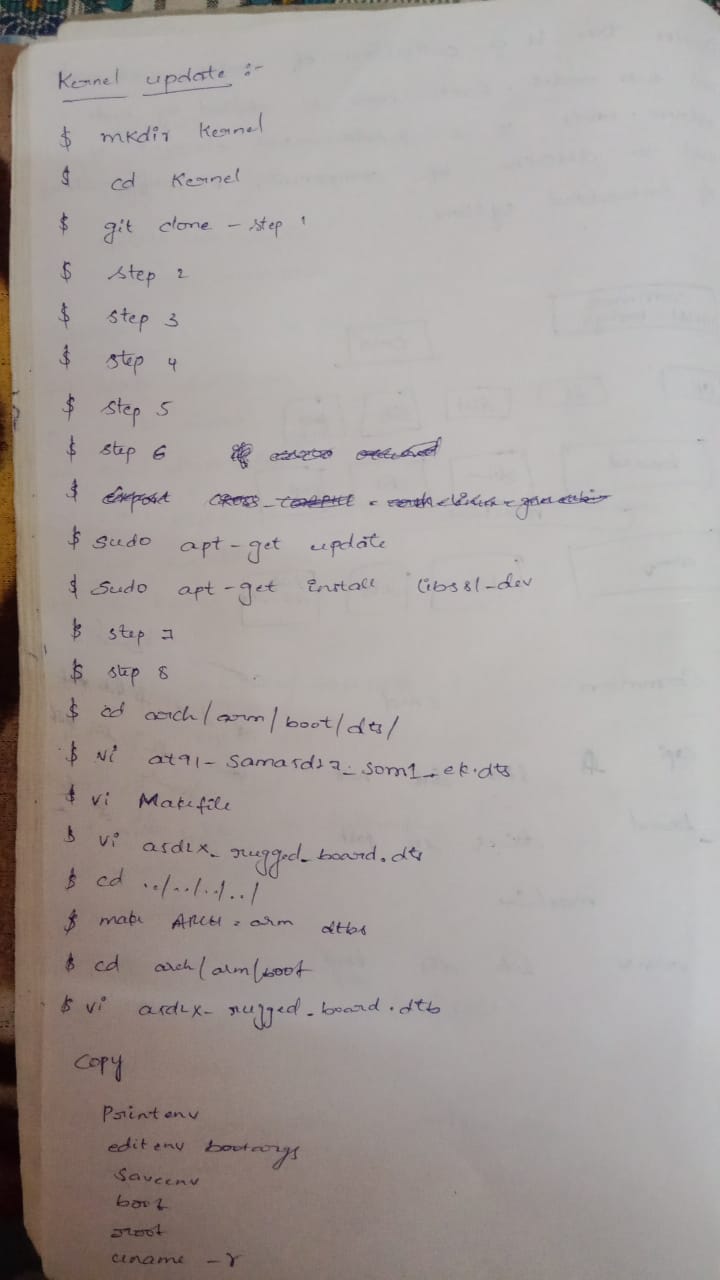 Kernel update :-
$ mkdir Kernel
$ cd Kernel
$ git clone - step 1
$ step 2
$ step 3
$ step 4
$ step 5
$ step 6
$ export CROSS_
$ sudo apt-get update
$ sudo apt-get install libssl-dev
$ step 7
$ step 8
$ cd arch/arm/boot/dts/
$ vi at91-sama5d27_som1_ek.dts
$ vi Makefile
$ vi a5d2x_rugged_board.dts
$ cd ../../../../
$ make ARCH = arm dtbs
$ cd arch/arm/boot
$ vi a5d2x-rugged_board.dtb
Copy
Printenv
editenv bootargs
Saveenv
boot
root
uname -r